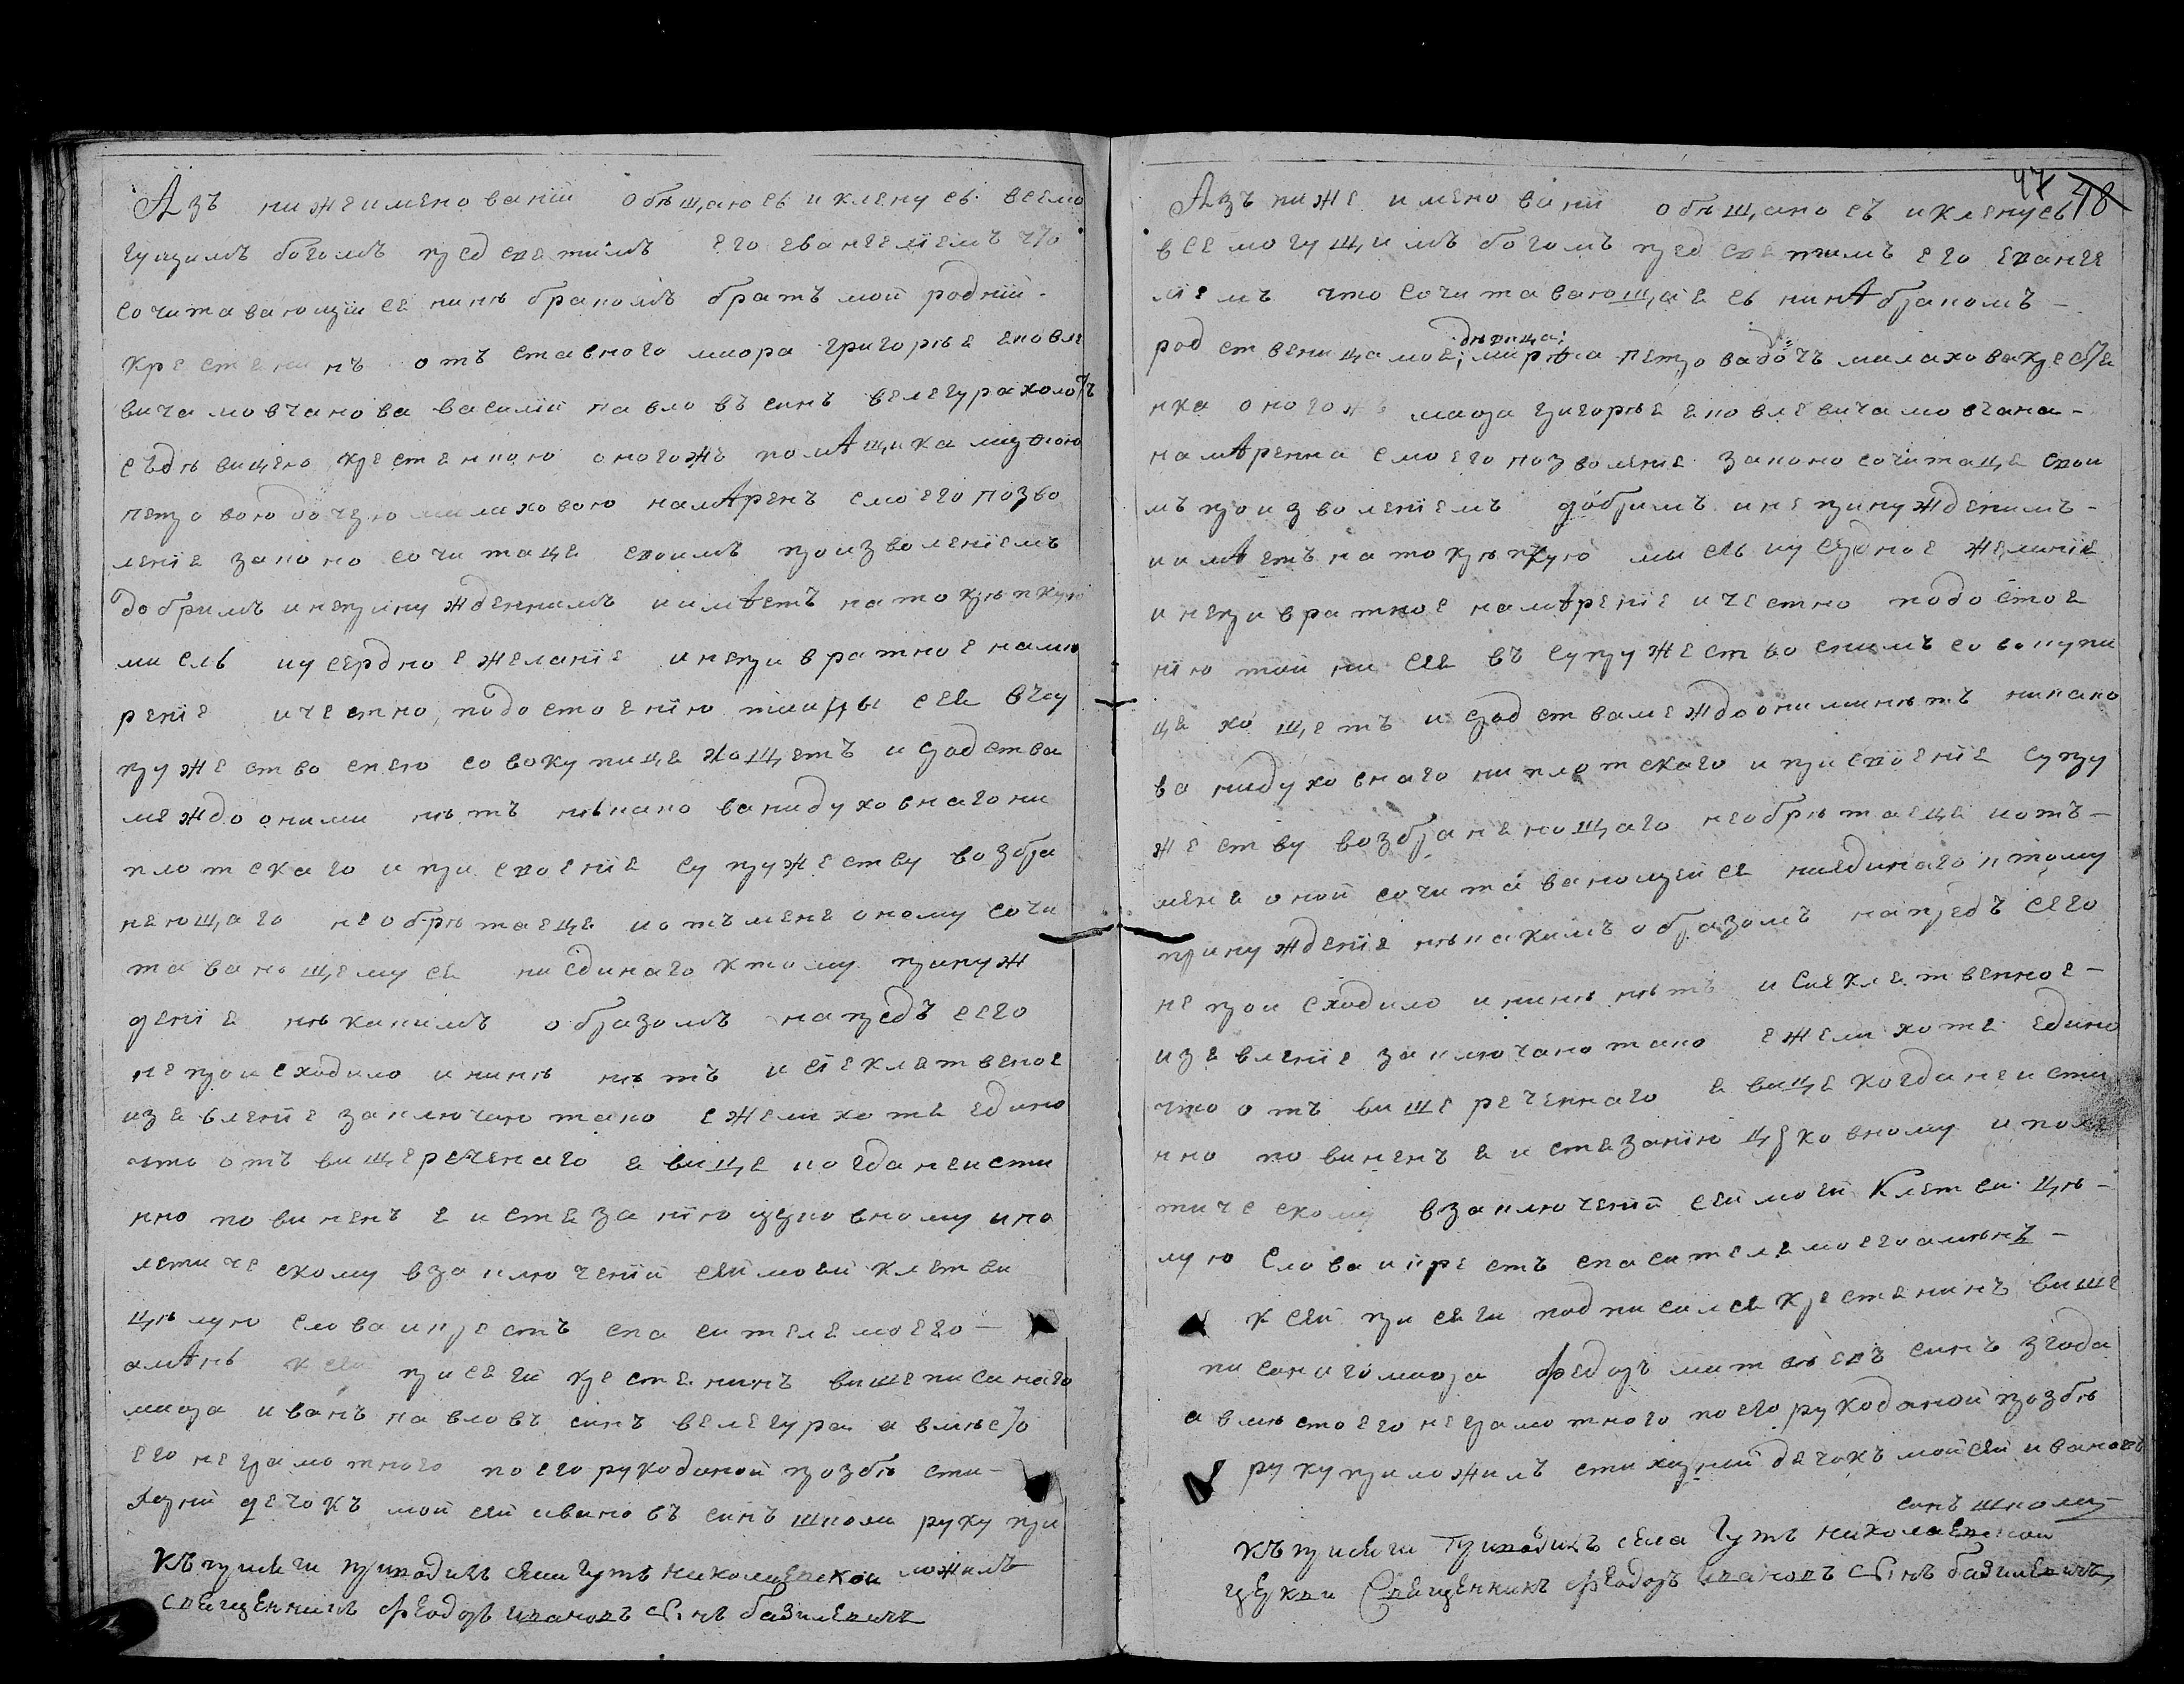 Азъ нижеименованій обѣщаюсь и кленусь всемо
гущимъ богомъ пред светимъ его евангеліемъ что
сочитавающійсе нинѣ бракомъ братъ мой родній
крестенинъ отъ ставного маора григорѣе ековле
вича мовчанова василій павловъ синъ велегура холостъ
съ дѣвицею крестенкою оногожъ помѣщика марѳою
петровою дочерю милаховою намѣренъ с моего позво
леніе законо сочитаце своимъ произволеніемъ
добримъ и непринужденнимъ и имѣетъ на то крѣпкую
мисль и усердное желаніе и непривратное намѣ
реніе и честно подостоенію тии ны сев въ су
пружество снею совокупице хощетъ и родства
междо оними нѣтъ нѣкакова ни духовнаго ни
плотскаго и присвоеніе супружеству возбра
неющаго необрѣтаеце и отъ мене оному сочи
тавающемусе ни единаго ктому принуж
деніе нѣкакимъ образомъ напредъ сего
не произходило и нинѣ нѣтъ и сіе клетвеное
изевленіе заключаю тако ежели хоте едино
что отъ вищереченаго евице когда неисти
нно повиненъ е истезанію церковному и по
летическому в заключеній сей моей клетви
цѣлую слова и крестъ спасителе моего
амѣнь к сей присеги крестенинъ вишеписанаго
маора иванъ павловъ синъ велегура а вмѣсто
его неграмотного по его рукоданой прозбѣ сти
харний дечокъ мойсей ивановъ синъ школи руку при
ложилъ
Къ присяги приводилъ села Гутъ николаевской
священникъ Феодоръ Ивановъ Сынъ базилевичъ
47 48
Азъ нижеименованій обѣщаюсъ и кленусь
всемогущимъ богомъ пред светимъ его еванге
ліемъ что сочитавающаесь нинѣ бракомъ
родственицамое дѣвица марѳа петрова дочъ милахова крестен
нка оногожъ маора григорѣе ековлевича мовчана
намѣренна с моего позволеніе законо сочитаце свои
мъ произволеніемъ добримъ и не принужденимъ
и имѣетъ на то крѣпкую мисль и усердное желаніе
и непривратное намѣреніе и честно подостое
нію той ни сев въ супружество снимъ совокупи
це хощетъ и родства междо оними нѣтъ никако
ва ни духовнаго ни плотскаго и присвоеніе супру
жеству возбраненющаго необрѣтаеце и отъ
мене оной сочитавающейсе ни единаго ктому
принужденіе нѣкакимъ образомъ напредъ сего
не произходило и нинѣ нѣтъ и сие клетвенное
изевленіе заключаю тако ежели хоте едино
что отъ вишереченнаго евице когда неисти
нно повиненъ е истезанію црковному и поле
тическому в заключеній сей моей Клетви цѣ
лую Слова и крестъ спасителемоего амѣнъ
к сей присеги подписался крестенинъ више
писаного маора федоръ матвѣевъ синъ згода
а вмѣсто его неграмотного по его рукоданой прозбѣ
руку приложилъ стихарний дечокъ мойсей ивановъ
синъ школи
Къ присяги Приводилъ села Гутъ николаевской
церкви Священникъ Феодоръ Ивановъ Сынъ базилевичъ